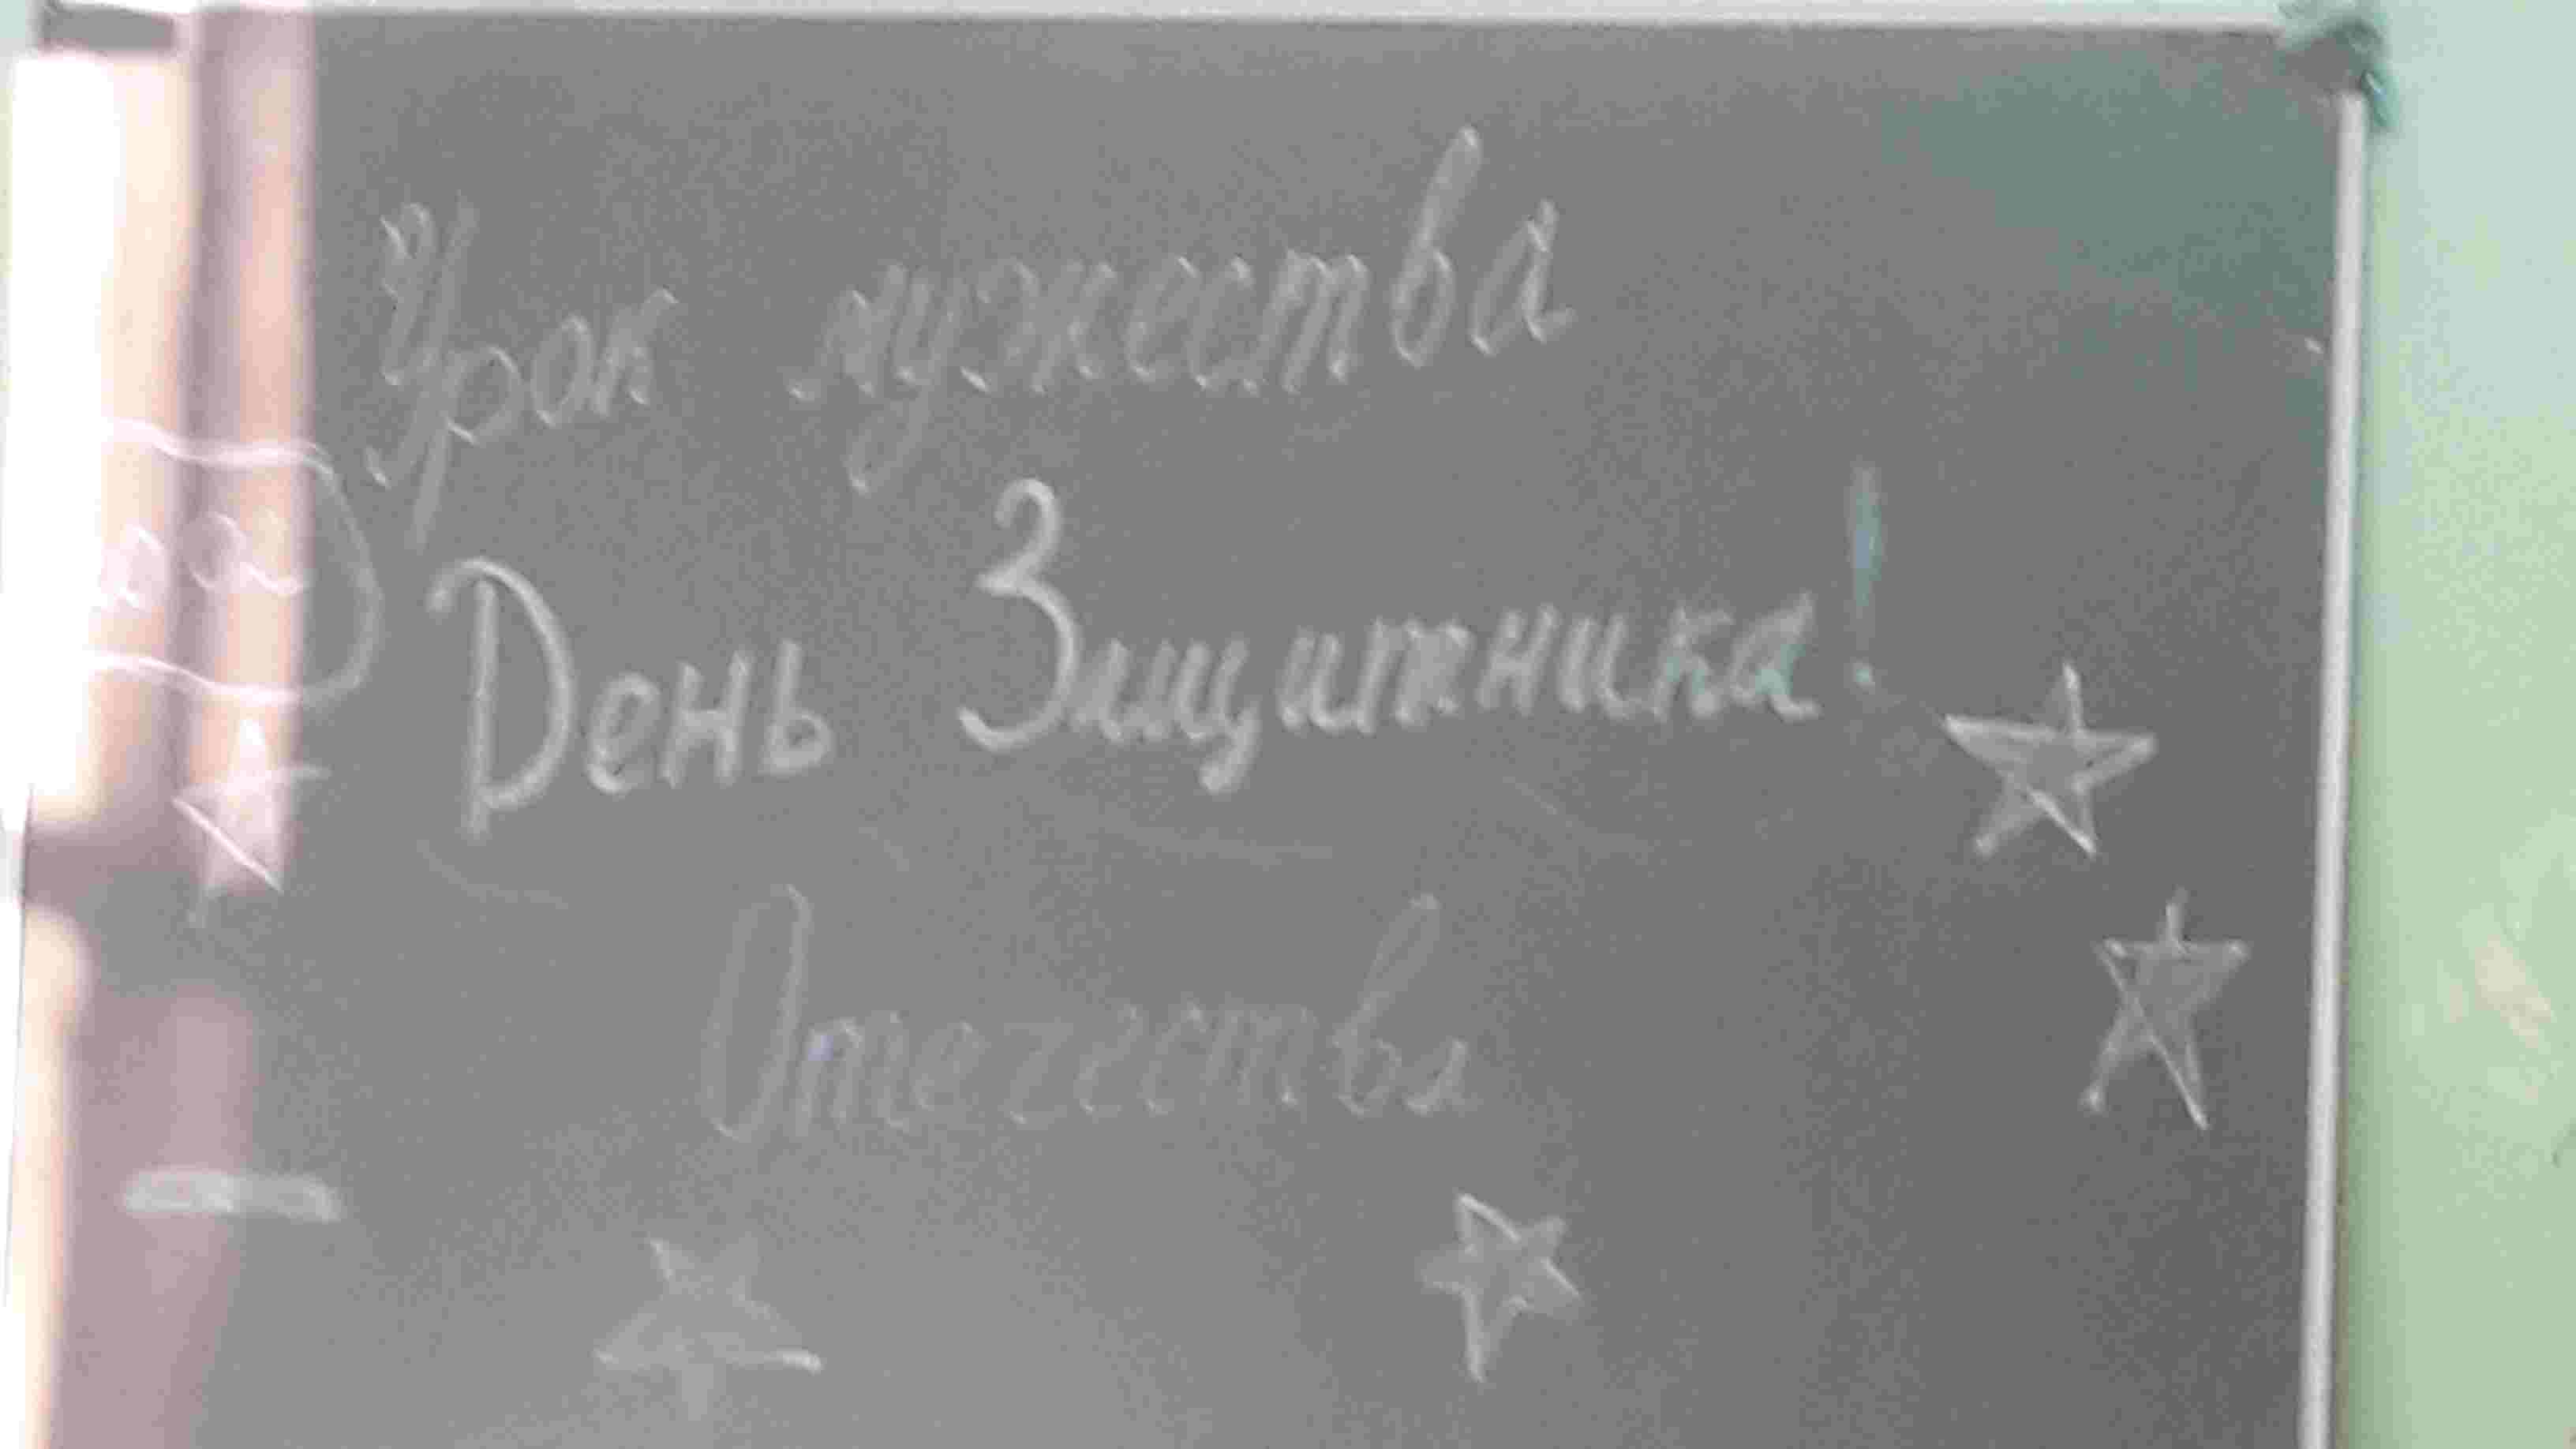 Урок мужества
День Защитника!
Отечества